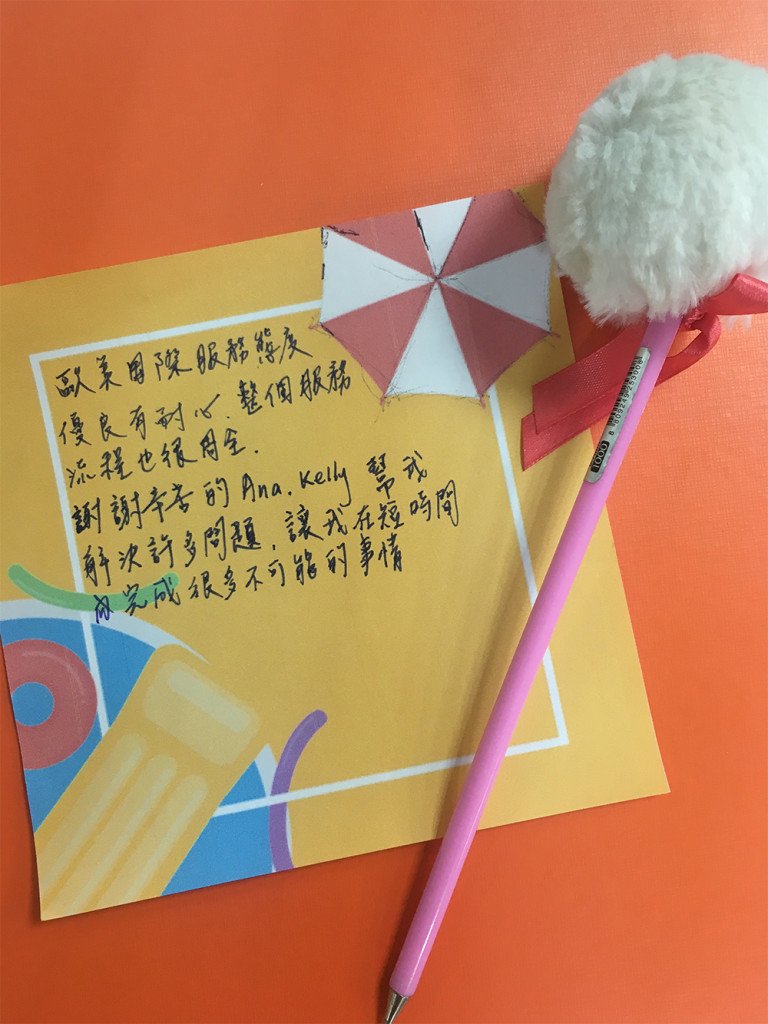 歐美國際服務態度
優良有耐心. 整個服務
流程也很周全.
謝謝辛苦的 Ana. Kelly 幫我
解決許多問題. 讓我在短時間
內完成很多不可能的事情
1000
8 809249 253008